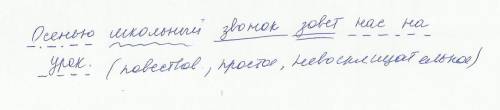 Осенью школьный звонок зовет нас на
урок. (повествов, простое, невосклицательное)